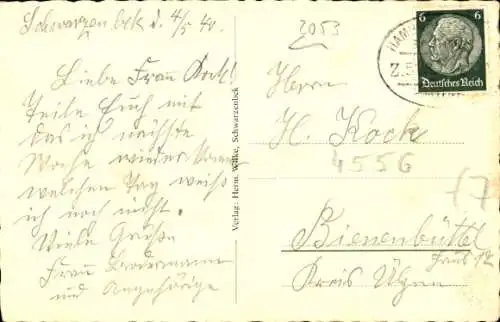 Schwarzenbek d. 4/5 40.
Liebe Frau Koch!
Teile Euch mit
das ich nächste
Woche wieder komme
welchen Tag weiß
ich noch nicht.
Viele Grüße
Frau
und Angehörige
Verlag: Herm. Wilke, Schwarzenbek
2053
6 6
Deutsches Reich
HAM
Z.5
Herrn
H. Koch
4556
(7
Bienenbüttel
Haus 12
Kreis Ülzen